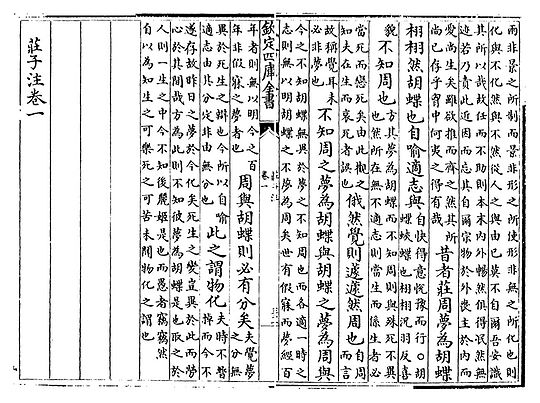 而非景之所制而景非形之所使形非無之所化也則
化與不化然與不然從人之與由已莫不自爾吾安識
其所以哉故任而不助則本末内外暢然俱得泯然無
迹若乃責此近因而忘其自爾宗物於外喪主於内而
愛尚生矣雖欲推而齊之然其所
尚已存乎胷中何夷之得有哉
昔者莊周夢為胡蝶
栩栩然胡蝶也自喻適志與
自快得意悦豫而行○胡
蝶蛺蝶也栩栩况羽反喜
貌
不知周也
方其夢為胡蝶而不知周則與殊死不異
也然所在無不適志則當生而係生者必
當死而戀死矣由此觀之
知夫在生而哀死者誤也
俄然覺則遽遽然周也
自周
而言
故稱覺耳未
必非夢也
不知周之夢為胡蝶與胡蝶之夢為周與
今之不知胡蝶無異於夢之不知周也而各適一時之
志則無以明胡蝶之不夢為周矣世有假寐而夢經百
欽定四庫全書
莊子注
卷一
年者則無以明今之百
年非假寐之夢者也
周與胡蝶則必有分矣
夫覺夢
之分無
異於死生之辯也今所以自喻
適志由其分定非由無分也
此之謂物化
夫時不暫
停而今不
遂存故昨日之夢於今化矣死生之變豈異於此而勞
心於其間哉方為此則不知彼夢為胡蝶是也取之於
人則一生之中今不知後麗姬是也而愚者竊竊然
自以為知生之可樂死之可苦未聞物化之謂也
莊子注卷一